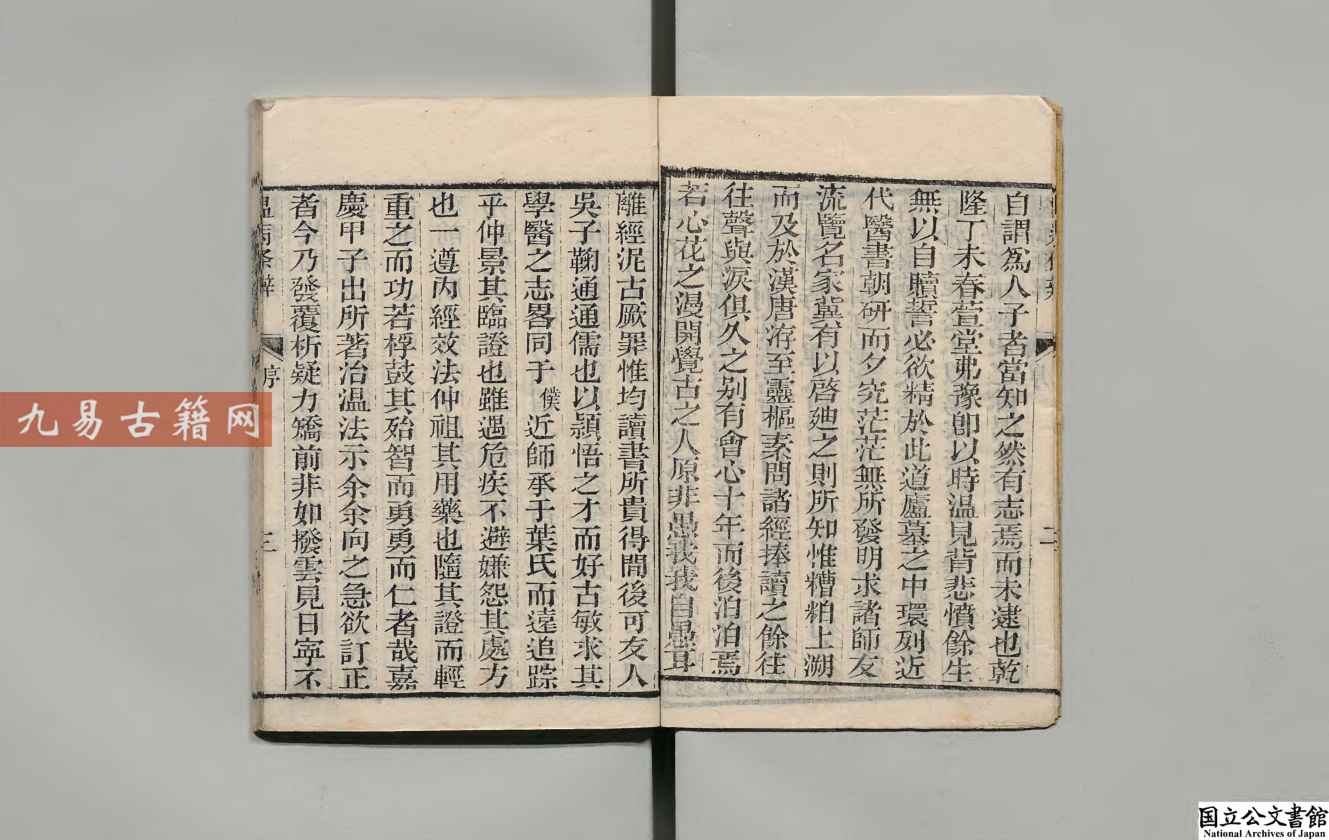 自謂為人子者當知之然有志焉而未逮也乾
隆丁未春萱堂弗豫即以時溫見背悲憤餘生
無以自贖誓必欲精於此道廬墓之中環列近
代醫書朝研而夕究茫茫無所發明求諸師友
流覽名家冀有以啓廸之則所知惟糟粕上溯
而及於漢唐洊至靈樞素問諸經捧讀之餘往
往聲與淚俱久之别有會心十年而後汩汩焉
若心花之漫開覺古之人原非愚我我自愚耳
離經泥古厥罪惟均讀書所貴得間後可友人
吳子鞠通通儒也以頴悟之才而好古敏求其
學醫之志畧同于僕近師承于葉氏而遠追踪
乎仲景其臨證也雖遇危疾不避嫌怨其處方
也一遵內經效法仲祖其用藥也隨其證而輕
重之而功若桴鼓其殆智而勇勇而仁者哉嘉
慶甲子出所著治温法示余余向之急欲訂正
者今乃發覆析疑力矯前非如撥雲見日寧不
序
二
三
九易古籍网
国立公文書館
National Archives of Japan